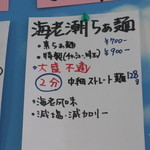 海老潮らぁ麺
・素らぁ麺 ¥700-
・特製(チャーシュー、味玉) ¥900-
・大盛 不適
・2分 中細ストレート麺 128g
・海老風味
・減塩・減カロリー